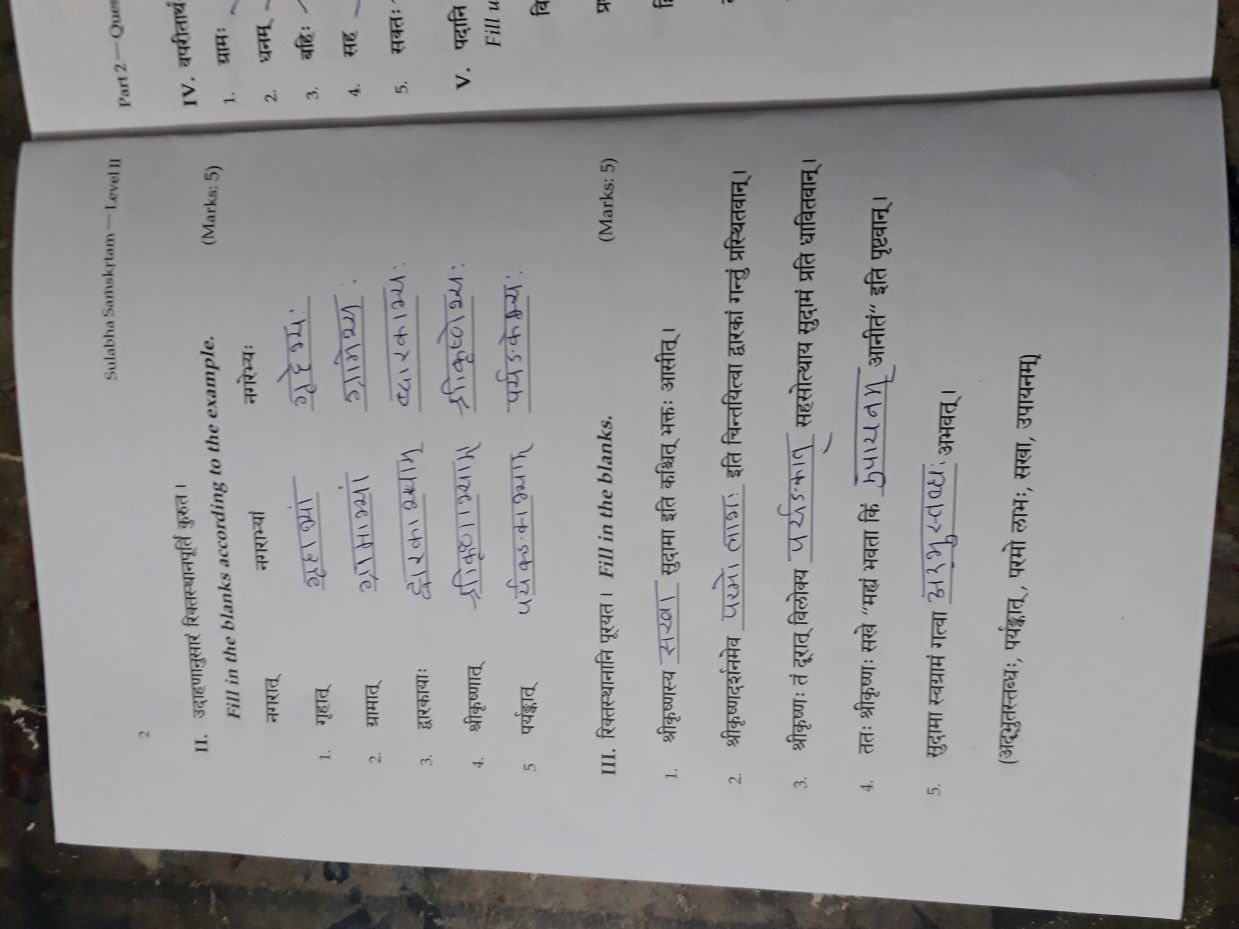 Sulabha Saṁskṛtam — Level II
2
II. उदाहणानुसारं रिक्तस्थानपूर्तिं कुरुत।
Fill in the blanks according to the example. (Marks: 5)
नगरात् नगराभ्यां नगरेभ्यः
1. गृहात् गृहाभ्यां गृहेभ्यः
2. ग्रामात् ग्रामाभ्यां ग्रामेभ्यः
3. द्वारकायाः द्वारकाभ्याम् द्वारकाभ्यः
4. श्रीकृष्णात् श्रीकृष्णाभ्याम् श्रीकृष्णेभ्यः
5 पर्यङ्कात् पर्यकङ्काभ्याम् पर्यङकेभ्यः
III. रिक्तस्थानानि पूरयत। Fill in the blanks. (Marks: 5)
1. श्रीकृष्णस्य सखा सुदामा इति कश्चित् भक्तः आसीत्।
2. श्रीकृष्णदर्शनमेव परमो लाभः इति चिन्तयित्वा द्वारकां गन्तुं प्रस्थितवान्।
3. श्रीकृष्णः तं दूरात् विलोक्य पर्यङकात् सहसोत्थाय सुदामं प्रति धावितवान्।
4. ततः श्रीकृष्णः सखे “मह्यं भवता किं उपायनम् आनीतं“ इति पृष्टवान्।
5. सुदामा स्वग्रामं गत्वा अभवत्।
(अद्‌भुतस्तब्धः, पर्यङ्कात् , परमो लाभः, सखा, उपायनम्)
Part 2 — Ques
IV. वपरीतार्थ
1. ग्रामः
2. धनम्
3. बहिः
4. सह
5. सक्तः
V. पदानि
Fill u
वि
प्र